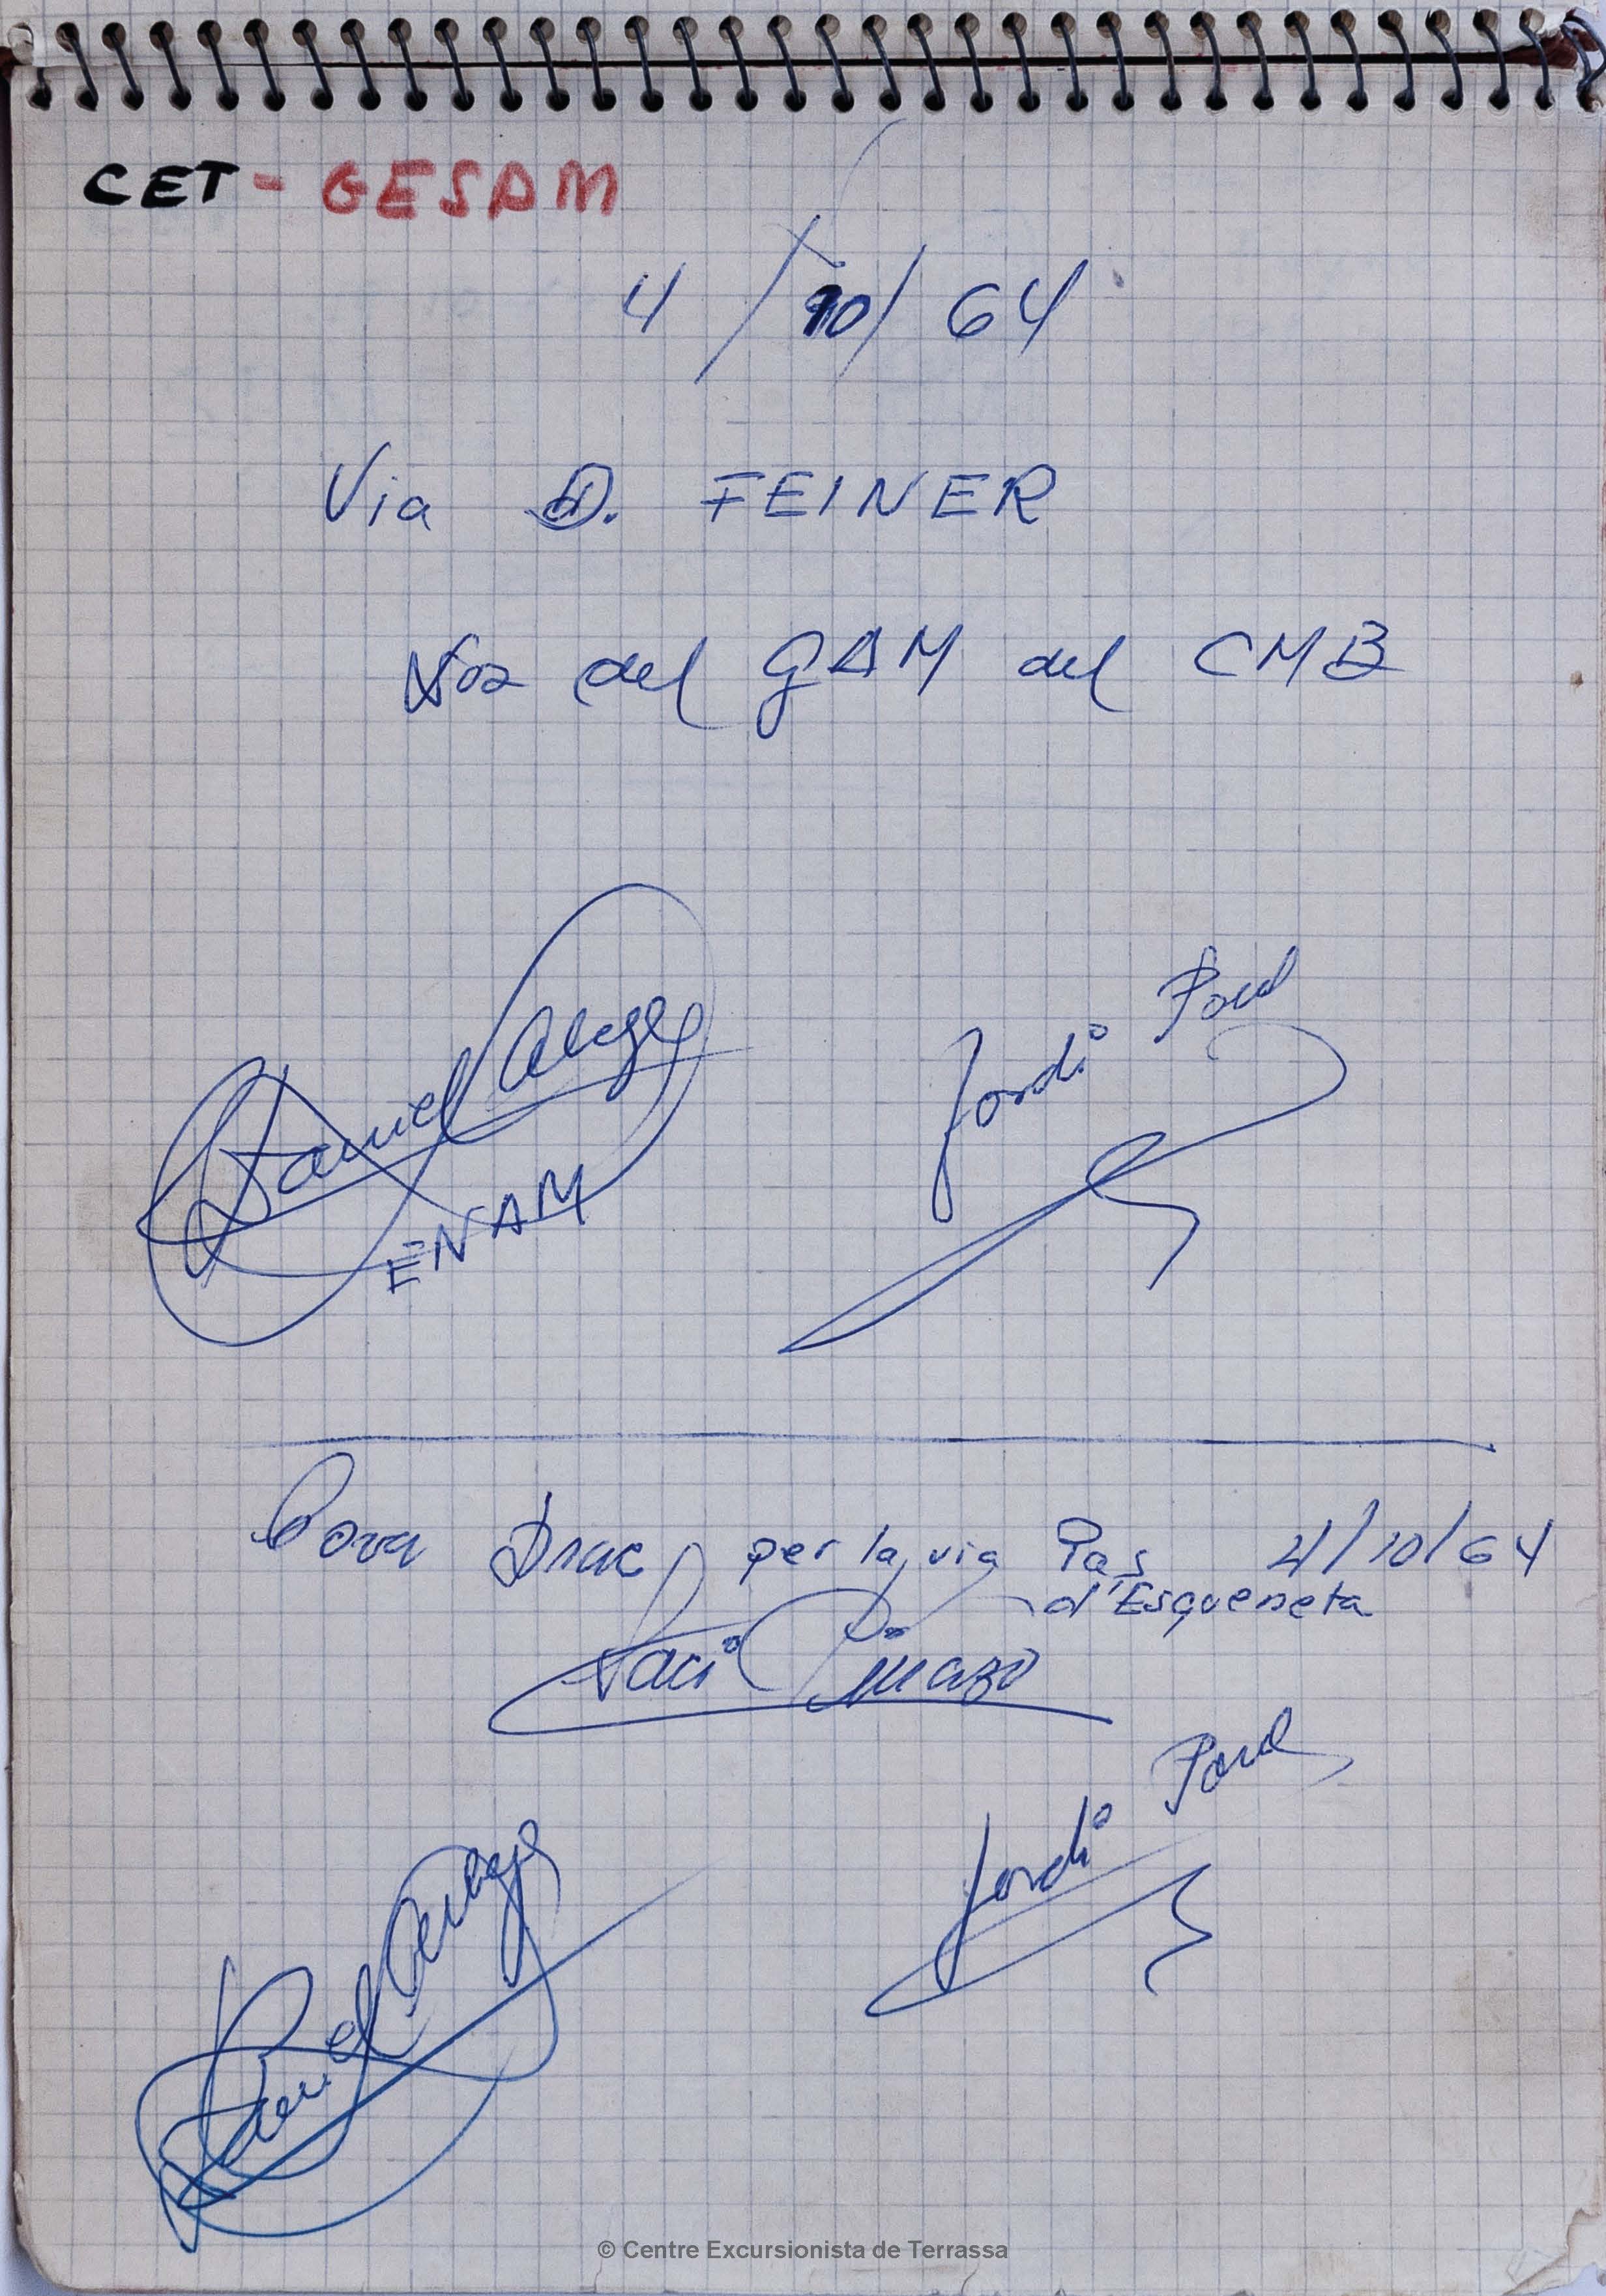 CET - GESAM
4/10/64
Via D. FEINER
del GAM del CMB
Daniel
Jordi Pons
ENAM
Cova Drac per la via Pas 4/10/64
d'Esqueneta
Jordi Pons
Daniel
© Centre Excursionista de Terrassa